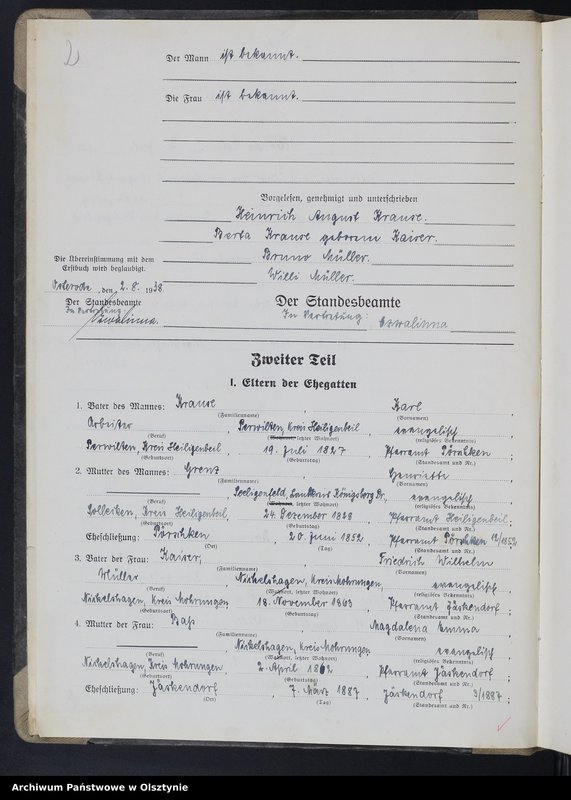 2
Der Mann ist bekannt.
Die Frau ist bekannt.
Vorgelesen, genehmigt und unterschrieben
Heinrich August Krause.
Berta Krause geborene Kaiser.
Bruno Müller.
Willi Müller.
Die Übereinstimmung mit dem
Erstbuch wird beglaubigt.
Osterode, den 2. 8. 1938.
Der Standesbeamte
In Vertretung:
Der Standesbeamte
In Vertretung:
Zweiter Teil
I. Eltern der Ehegatten
1. Vater des Mannes: Krause, Karl
(Familienname) (Vornamen)
Arbeiter, Perwilten, Kreis Heiligenbeil, evangelisch
(Beruf) (Wohnort, letzter Wohnort) (religiöses Bekenntnis)
Perwilten, Kreis Heiligenbeil, 19. Juli 1827, Pfarramt Pörschken
(Geburtsort) (Geburtstag) (Standesamt und Nr.)
2. Mutter des Mannes: Grenz, Henriette
(Familienname) (Vornamen)
Seeligenfeld, Landkreis Königsberg Pr., evangelisch
(Beruf) (Wohnort, letzter Wohnort) (religiöses Bekenntnis)
Kreis Heiligenbeil, 24. Dezember 1828, Pfarramt Heiligenbeil;
(Geburtsort) (Geburtstag) (Standesamt und Nr.)
Eheschließung: Pörschken, 20. Juni 1852, Pfarramt Pörschken 12/1852
(Ort) (Tag)
3. Vater der Frau: Kaiser, Friedrich Wilhelm
(Familienname) (Vornamen)
Müller, Nickelshagen, Kreis Mohrungen, evangelisch
(Beruf) (Wohnort, letzter Wohnort) (religiöses Bekenntnis)
Nickelshagen, Kreis Mohrungen, 18. November 1863, Pfarramt Jäskendorf;
(Geburtsort) (Geburtstag) (Standesamt und Nr.)
4. Mutter der Frau: Magdalena Emma
(Familienname) (Vornamen)
Nickelshagen, Kreis Mohrungen, evangelisch
(Beruf) (Wohnort, letzter Wohnort) (religiöses Bekenntnis)
Nickelshagen, Kreis Mohrungen, 2. April 1862, Pfarramt Jäskendorf;
(Geburtsort) (Geburtstag) (Standesamt und Nr.)
Eheschließung: Jäskendorf, 7. März 1887, Jäskendorf 3/1887;
(Ort) (Tag) (Standesamt und Nr.)
Archiwum Państwowe w Olsztynie